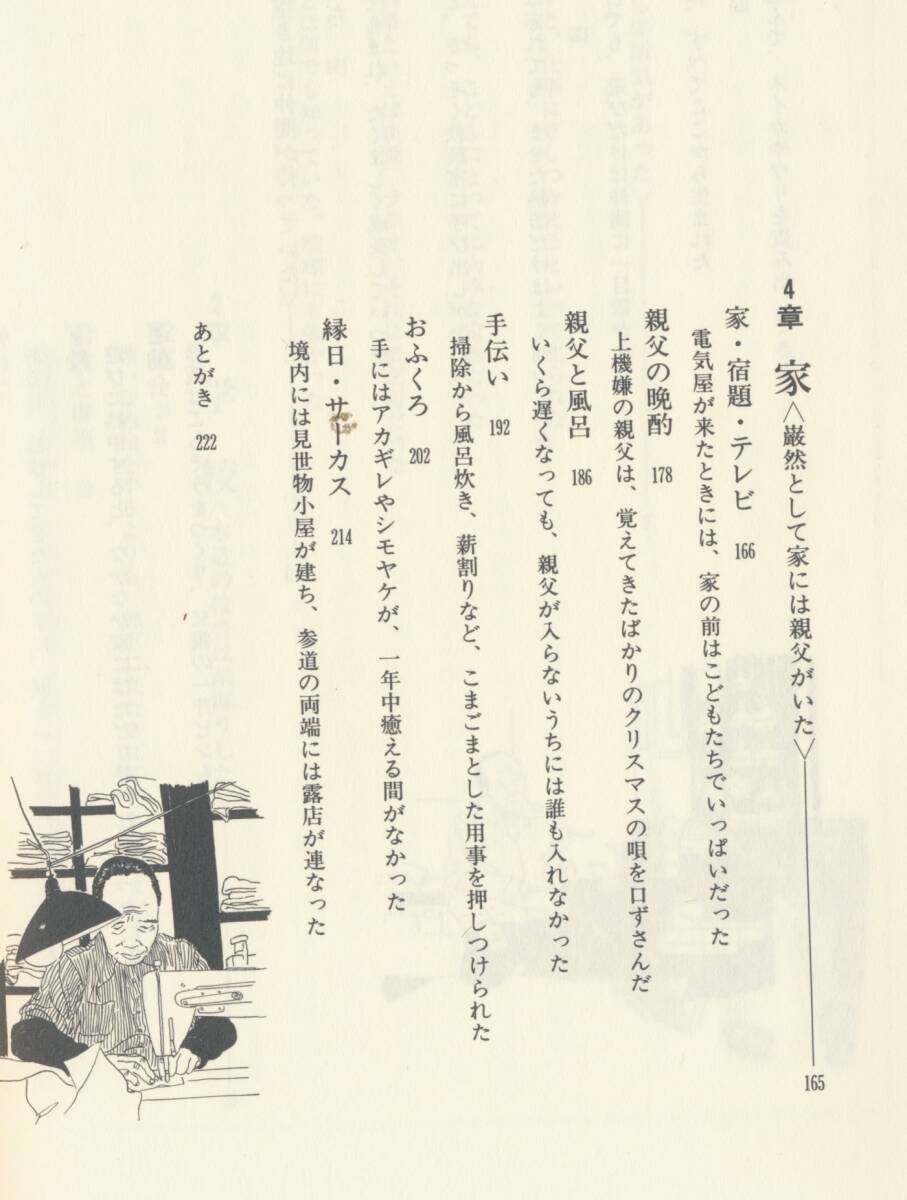 4章 家〈厳然として家には親父がいた〉 165
家・宿題・テレビ 166
電気屋が来たときには、家の前はこどもたちでいっぱいだった
親父の晩酌 178
上機嫌の親父は、覚えてきたばかりのクリスマスの唄を口ずさんだ
親父と風呂 186
いくら遅くなっても、親父が入らないうちには誰も入れなかった
手伝い 192
掃除から風呂炊き、薪割りなど、こまごまとした用事を押しつけられた
おふくろ 202
手にはアカギレやシモヤケが、一年中癒える間がなかった
縁日・サーカス 214
境内には見世物小屋が建ち、参道の両端には露店が連なった
あとがき 222